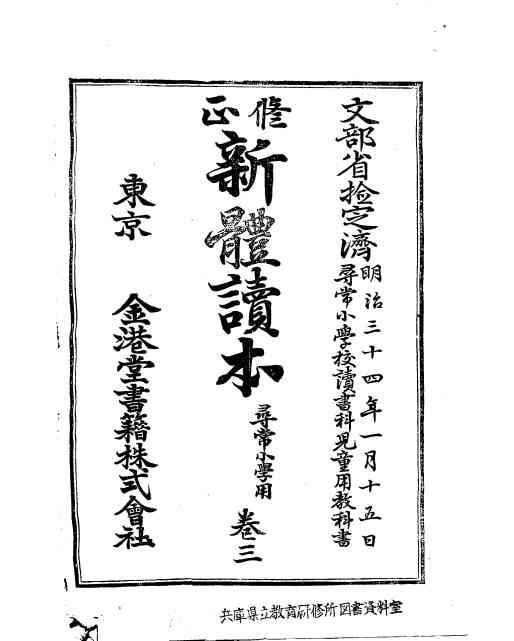 文部省檢定濟
明治三十四年一月十五日
尋常小學校讀書科兒童用教科書
修正
新體讀本
尋常小學用
卷三
東京 金港堂書籍株式會社
兵庫県立教育研修所図書資料室